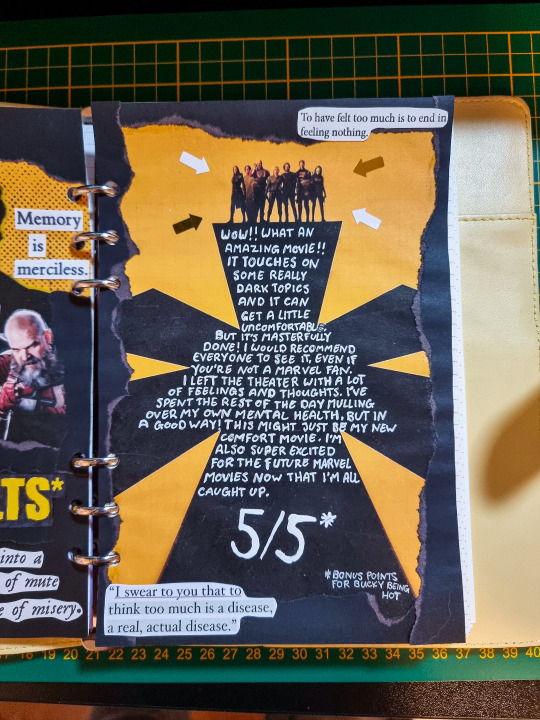 Memory
is
merciless.
LTS*
into a
of mute
e of misery.
To have felt too much is to end in
feeling nothing.
WOW!! WHAT AN
AMAZING MOVIE!!
IT TOUCHES ON
SOME REALLY
DARK TOPICS
AND IT CAN
GET A LITTLE
UNCOMFORTABLE,
BUT IT'S MASTERFULLY
DONE! I WOULD RECOMMEND
EVERYONE TO SEE IT, EVEN IF
YOU'RE NOT A MARVEL FAN.
I LEFT THE THEATER WITH A LOT
OF FEELINGS AND THOUGHTS. I'VE
SPENT THE REST OF THE DAY MULLING
OVER MY OWN MENTAL HEALTH, BUT IN
A GOOD WAY! THIS MIGHT JUST BE MY NEW
COMFORT MOVIE. I'M
ALSO SUPER EXCITED
FOR THE FUTURE MARVEL
MOVIES NOW THAT I'M ALL
CAUGHT UP.
5/5*
*BONUS POINTS
FOR BUCKY BEING
HOT
"I swear to you that to
think too much is a disease,
a real, actual disease."
19 20 21 22 23 24 25 26 27 28 29 30 31 32 33 34 35 36 37 38 39 40